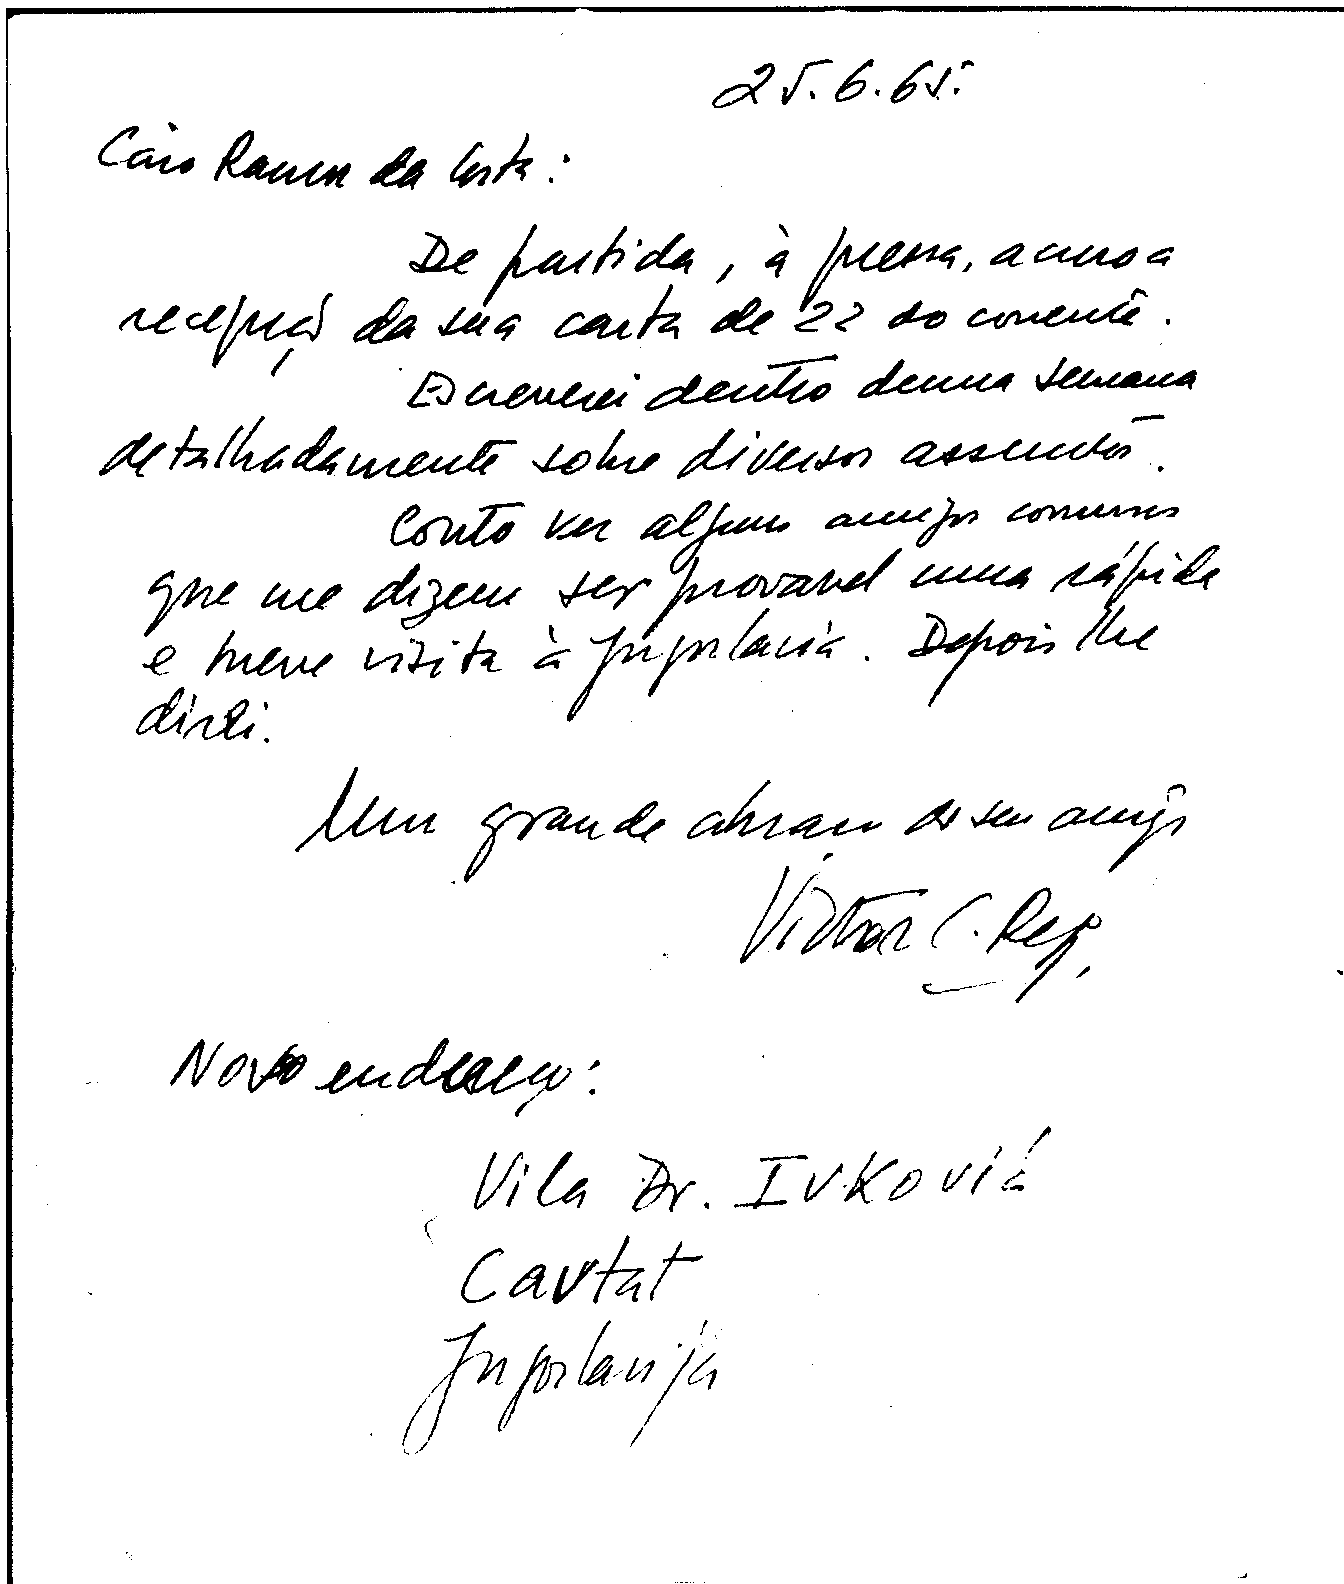 25.6.65.
Caro Ramos da Costa:
De partida, à pressa, acuso a
recepção da sua carta de 22 do corrente.
Escreverei dentro duma semana
detalhadamente sobre diversos assuntos.
Conto ver alguns amigos comuns
que me dizem ser provavel uma rápida
e breve visita à Jugoslavia. Depois lhe
direi.
Um grande abraço do seu amigo
Victor C. Reg.
Novo endereço:
Vila Dr. IVKović
Cavtat
Jugoslavija